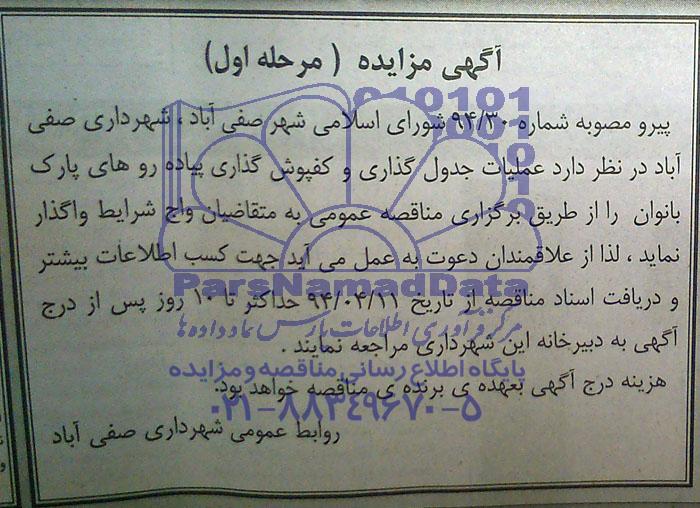 آگهی مزایده ( مرحله اول)
پیرو مصوبه شماره ۹۴/۳۰ شورای اسلامی شهر صفی آباد ، شهرداری صفی
آباد در نظر دارد عملیات جدول گذاری و کفپوش گذاری پیاده رو های پارک
بانوان را از طریق برگزاری مناقصه عمومی به متقاضیان واج شرایط واگذار
نماید ، لذا از علاقمندان دعوت به عمل می آید جهت کسب اطلاعات بیشتر
و دریافت اسناد مناقصه از تاریخ ۹۴/۰۴/۲۱ حداکثر تا ۱۰ روز پس از درج
آگهی به دبیرخانه این شهرداری مراجعه نمایند .
هزینه درج آگهی بعهده ی برنده ی مناقصه خواهد بود.
روابط عمومی شهرداری صفی آباد
010101
ParsNamadData
مرکز فرآوری اطلاعات پارس نماد داده ها
پایگاه اطلاع رسانی مناقصه و مزایده
۰۲۱-۸۸۳۴۹۶۷۰-۵